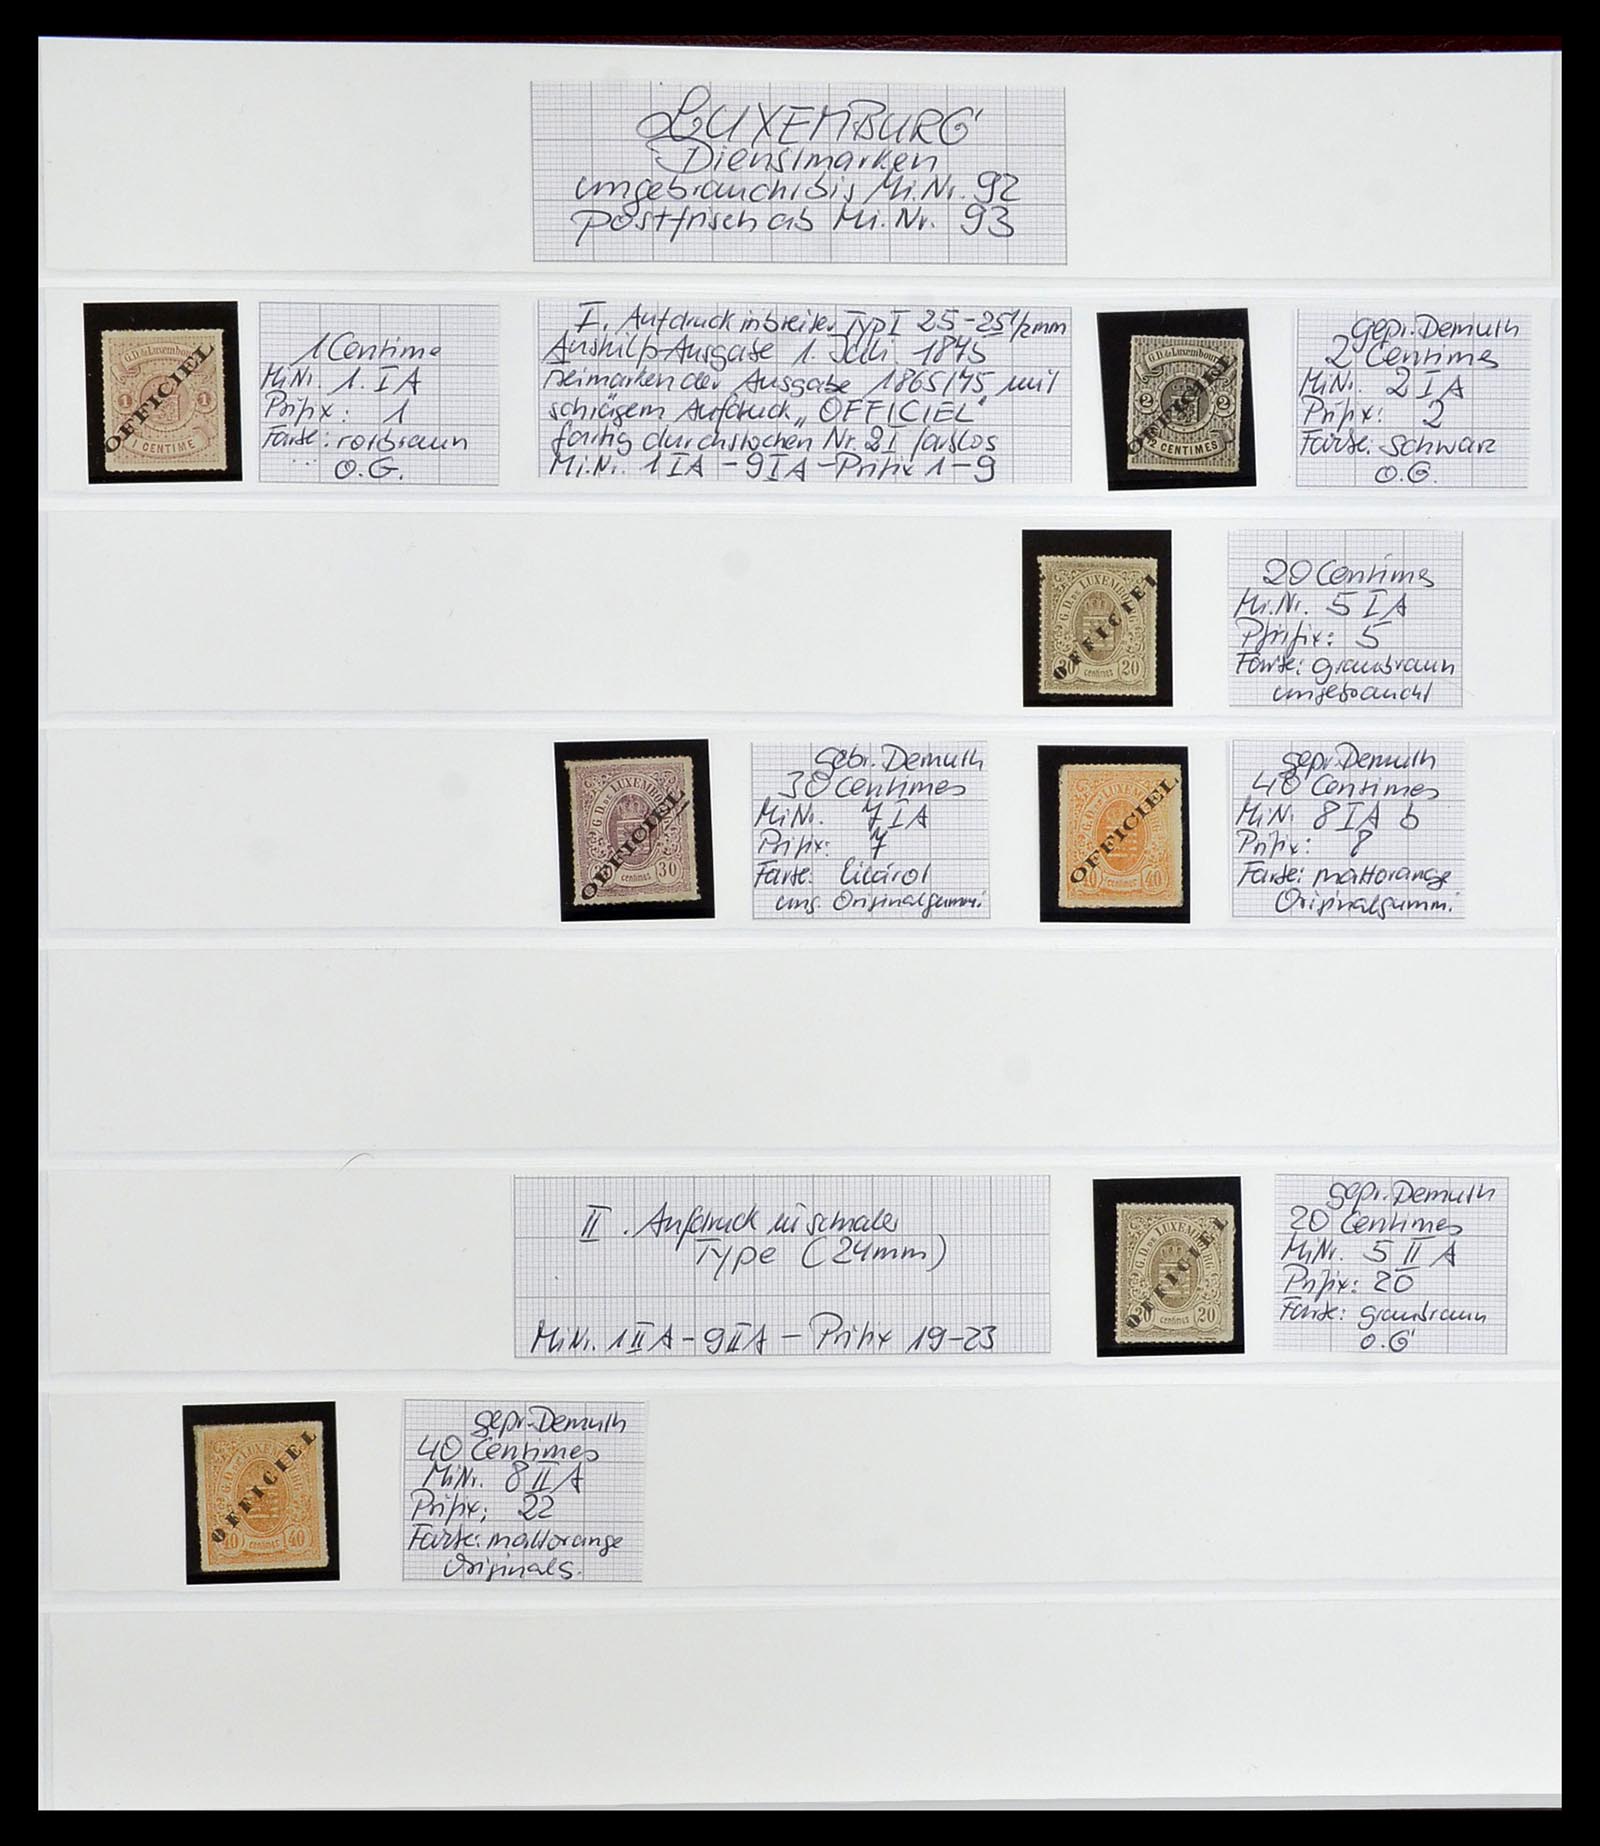 LUXEMBURG
Dienstmarken
ungebraucht bis Mi.Nr. 92
postfrisch ab Mi.Nr. 93
G.D. de Luxembourg
OFFICIEL
1 1
1 CENTIME
1 Centime
MiNr. 1. I A
Prifix: 1
Farbe: rotbraun
O.G.
I. Aufdruck in breiter Typ I 25-25 1/2 mm
Aushilfs-Ausgabe 1. Juli 1875
Freimarken der Ausgabe 1865/75 mit
schrägem Aufdruck „OFFICIEL"
farbig durchstochen Nr. 2 I farblos
Mi.Nr. 1 IA - 9 IA - Prifix 1-9
G.D. de Luxembourg
OFFICIEL
2 2
2 CENTIMES
gepr. Demuth
2 Centimes
MiNr. 2 I A
Prifix: 2
Farbe: schwarz
O.G.
G.D. DE LUXEMBOURG
OFFICIEL
20 centimes 20
20 Centimes
Mi.Nr. 5 I A
Prifix: 5
Farbe: graubraun
ungebraucht
G.D. DE LUXEMBOURG
OFFICIEL
centimes 30
gebr. Demuth
30 Centimes
MiNr. 7 I A
Prifix: 7
Farbe: lilarot
ung Originalgummi.
G.D. DE LUXEMBOURG
OFFICIEL
40 centimes 40
gepr. Demuth
40 Centimes
MiNr. 8 I A b
Prifix: 8
Farbe: mattorange
Originalgummi.
II. Aufdruck in schmaler
Type (24mm)
MiNr. 1 II A - 9 II A - Prifix 19-23
G.D. DE LUXEMBOURG
OFFICIEL
20 centimes 20
gepr. Demuth
20 Centimes
MiNr. 5 II A
Prifix: 20
Farbe: graubraun
O.G
G.D. DE LUXEMBOURG
OFFICIEL
40 centimes 40
gepr. Demuth
40 Centimes
MiNr. 8 II A
Prifix: 22
Farbe: mattorange
Originalg.